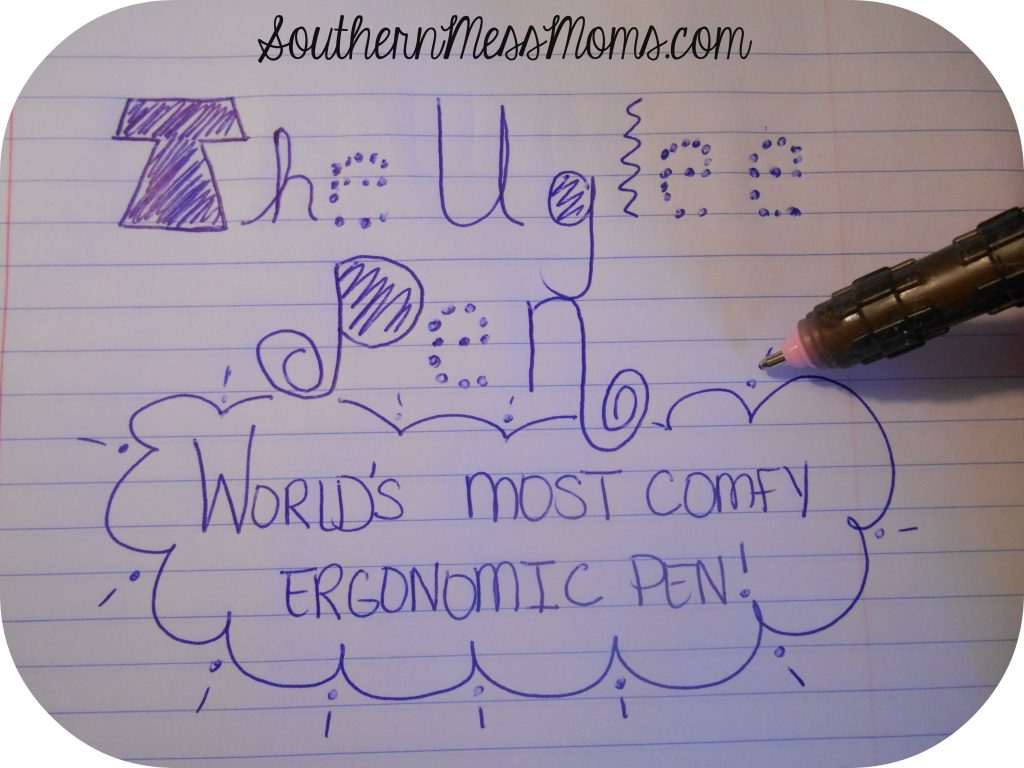 SouthernMessMoms.com
The Uglee
Pen
WORLD'S MOST COMFY
ERGONOMIC PEN!